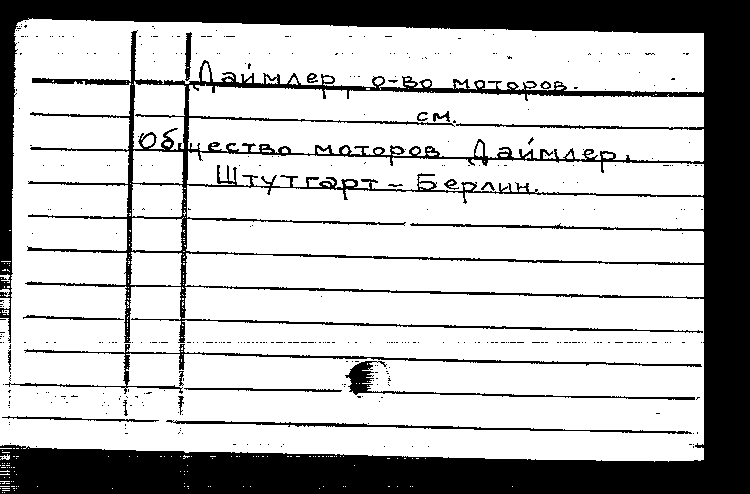 Даймлер, о-во моторов.
см.
Общество моторов Даймлер.
Штутгарт - Берлин.